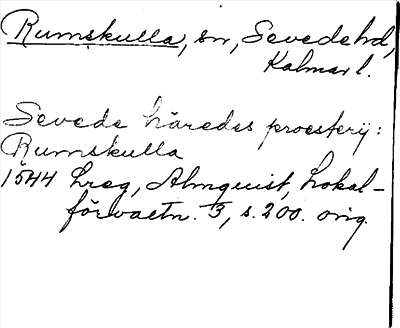 Rumskulla, sn, Sevede hd,
Kalmar l.
Sevede häredes proesterij:
Rumskulla
1544 Lreg, Almquist, Lokal-
förvaltn. 3, s. 200. orig.